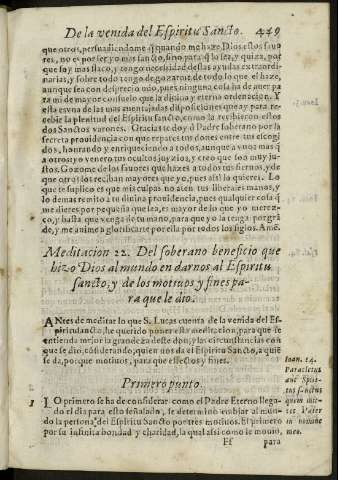 De la venida del Espiritu Sancto. 449
que otros, persuadiendome q̃ quando me haze Dios estos fauo
res, no es por ser yo mas sancto, sino para q̃ lo sea, y quiza, por
que soy mas flaco, y tengo necesidad destas ayudas extraordi
narias, y sobre todo tengo de gozarme de todo lo que el haze,
aunque sea con desprecio mio, pues ninguna cosa ha de auer pa
ra mi de mayor consuelo que la diuina y eterna ordenacion. Y
esta es vna de las mas auentajadas disposiciones que ay para re-
cebir la plenitud del Espiritu sancto, como la recibieron estos
dos Sanctos varones. Gracias te doy ò Padre soberano por la
secreta prouidencia con que repartes tus dones entre tus escogi
dos, honrando y enriqueciendo a todos, aunque a vnos mas q̃
a otros: yo venero tus ocultos juyzios, y creo que son muy jus-
tos. Gozome de los fauores que hazes a todos tus sieruos, y de
que otros los reciban mayores que yo, pues assi lo quieres. Lo
que te suplico es que mis culpas no aten tus liberales manos, y
lo demas remito a tu diuina prouidencia, pues qualquier cosa q̃
me dieres por pequeña que sea, es mayor de lo que yo merez-
co, y basta que venga de tu mano, para que yo la tenga por grã
de, y me anime a glorificarte por ella por todos los siglos. Amẽ.
Meditacion 22. Del soberano beneficio que
hizo Dios al mundo en darnos al Espiritu
sancto, y de los motiuos y fines pa-
ra que le dio.
ANtes de meditar lo que S. Lucas cuenta de la venida del Es-
piritu sancto, he querido poner esta meditacion, para que se
entienda mejor la grandeza deste don, y las circunstancias con
que se dio, cõsiderando, quien nos da el Espiritu Sancto, a quiẽ
se da, por que motiuos, para que effectos y fines.
Ioan. 14.
Paracletus
autẽ Spiri-
tus sanctus
quem mit-
tet Pater
in nomine
meo.
Primero punto.
1 LO primero se ha de considerar como el Padre Eterno llega-
do el dia para esto señalado, se determinò embiar al mun-
do la persona del Espiritu Sancto por tres motiuos. El primero
por su infinita bondad y charidad, la qual assi como le mouio,
Ff para